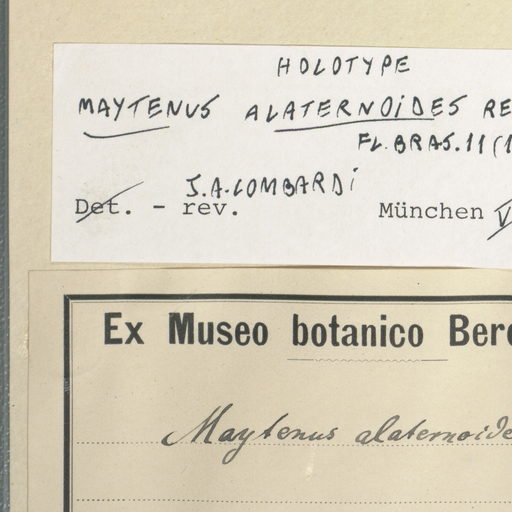 HOLOTYPE
MAYTENUS ALATERNOIDES RE
FL. BRAS. 11 (1
J.A. LOMBARDI
Det. - rev. München V
Ex Museo botanico Bero
Maytenus alaternoide